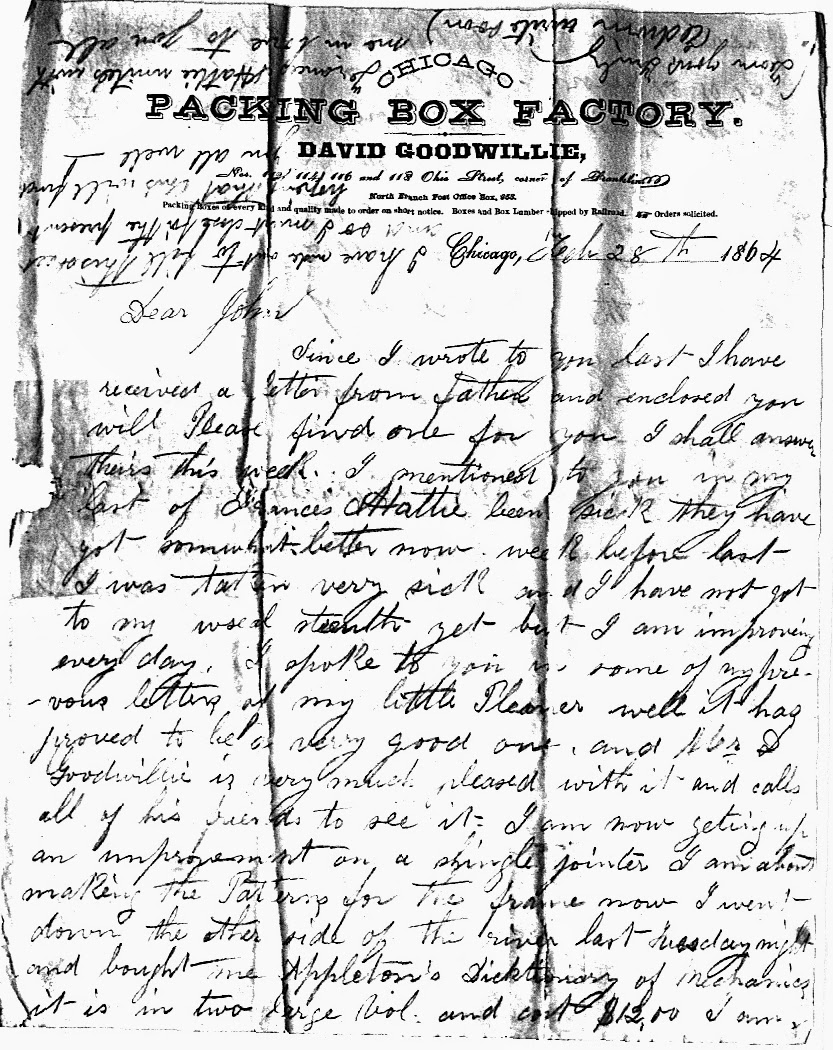 CHICAGO
PACKING BOX FACTORY.
DAVID GOODWILLIE,
116 and 118 Ohio Street, corner of Franklin
North Branch Post Office Box, 953.
Packing Boxes of every kind and quality made to order on short notice. Boxes and Box Lumber shipped by Railroad. Orders solicited.
Chicago, Feb 28th 1864
Dear John
Since I wrote to you last I have
received a letter from father and enclosed you
will Please find one for you I shall answer
theirs this week. I mentioned to you in my
last of Frances & Hattie been sick they have
got somwhat better now. week before last
I was taken very sick and I have not got
to my useal yet but I am improving
every day. I spoke to you in some of my pre-
-vous letters of my little Pleaner well it has
proved to be a very good one, and Mr D
Goodwillie is very much pleased with it and calls
all of his friends to see it= I am now geting up
an improvement on a shingle jointer I am about
making the Paterns for the frame now I went
down the other side of the river last tuesday night
and bought me Appleton's Dicktionary of Mechanics
it is in two large Vol. and cost $12,00 I am
I have made out to fill this sheet
and so I must close for the present
hopeing that this will find
you all well
Frances & Hattie unites with
me in love to you all
from yours truly
(Edwin write soon)